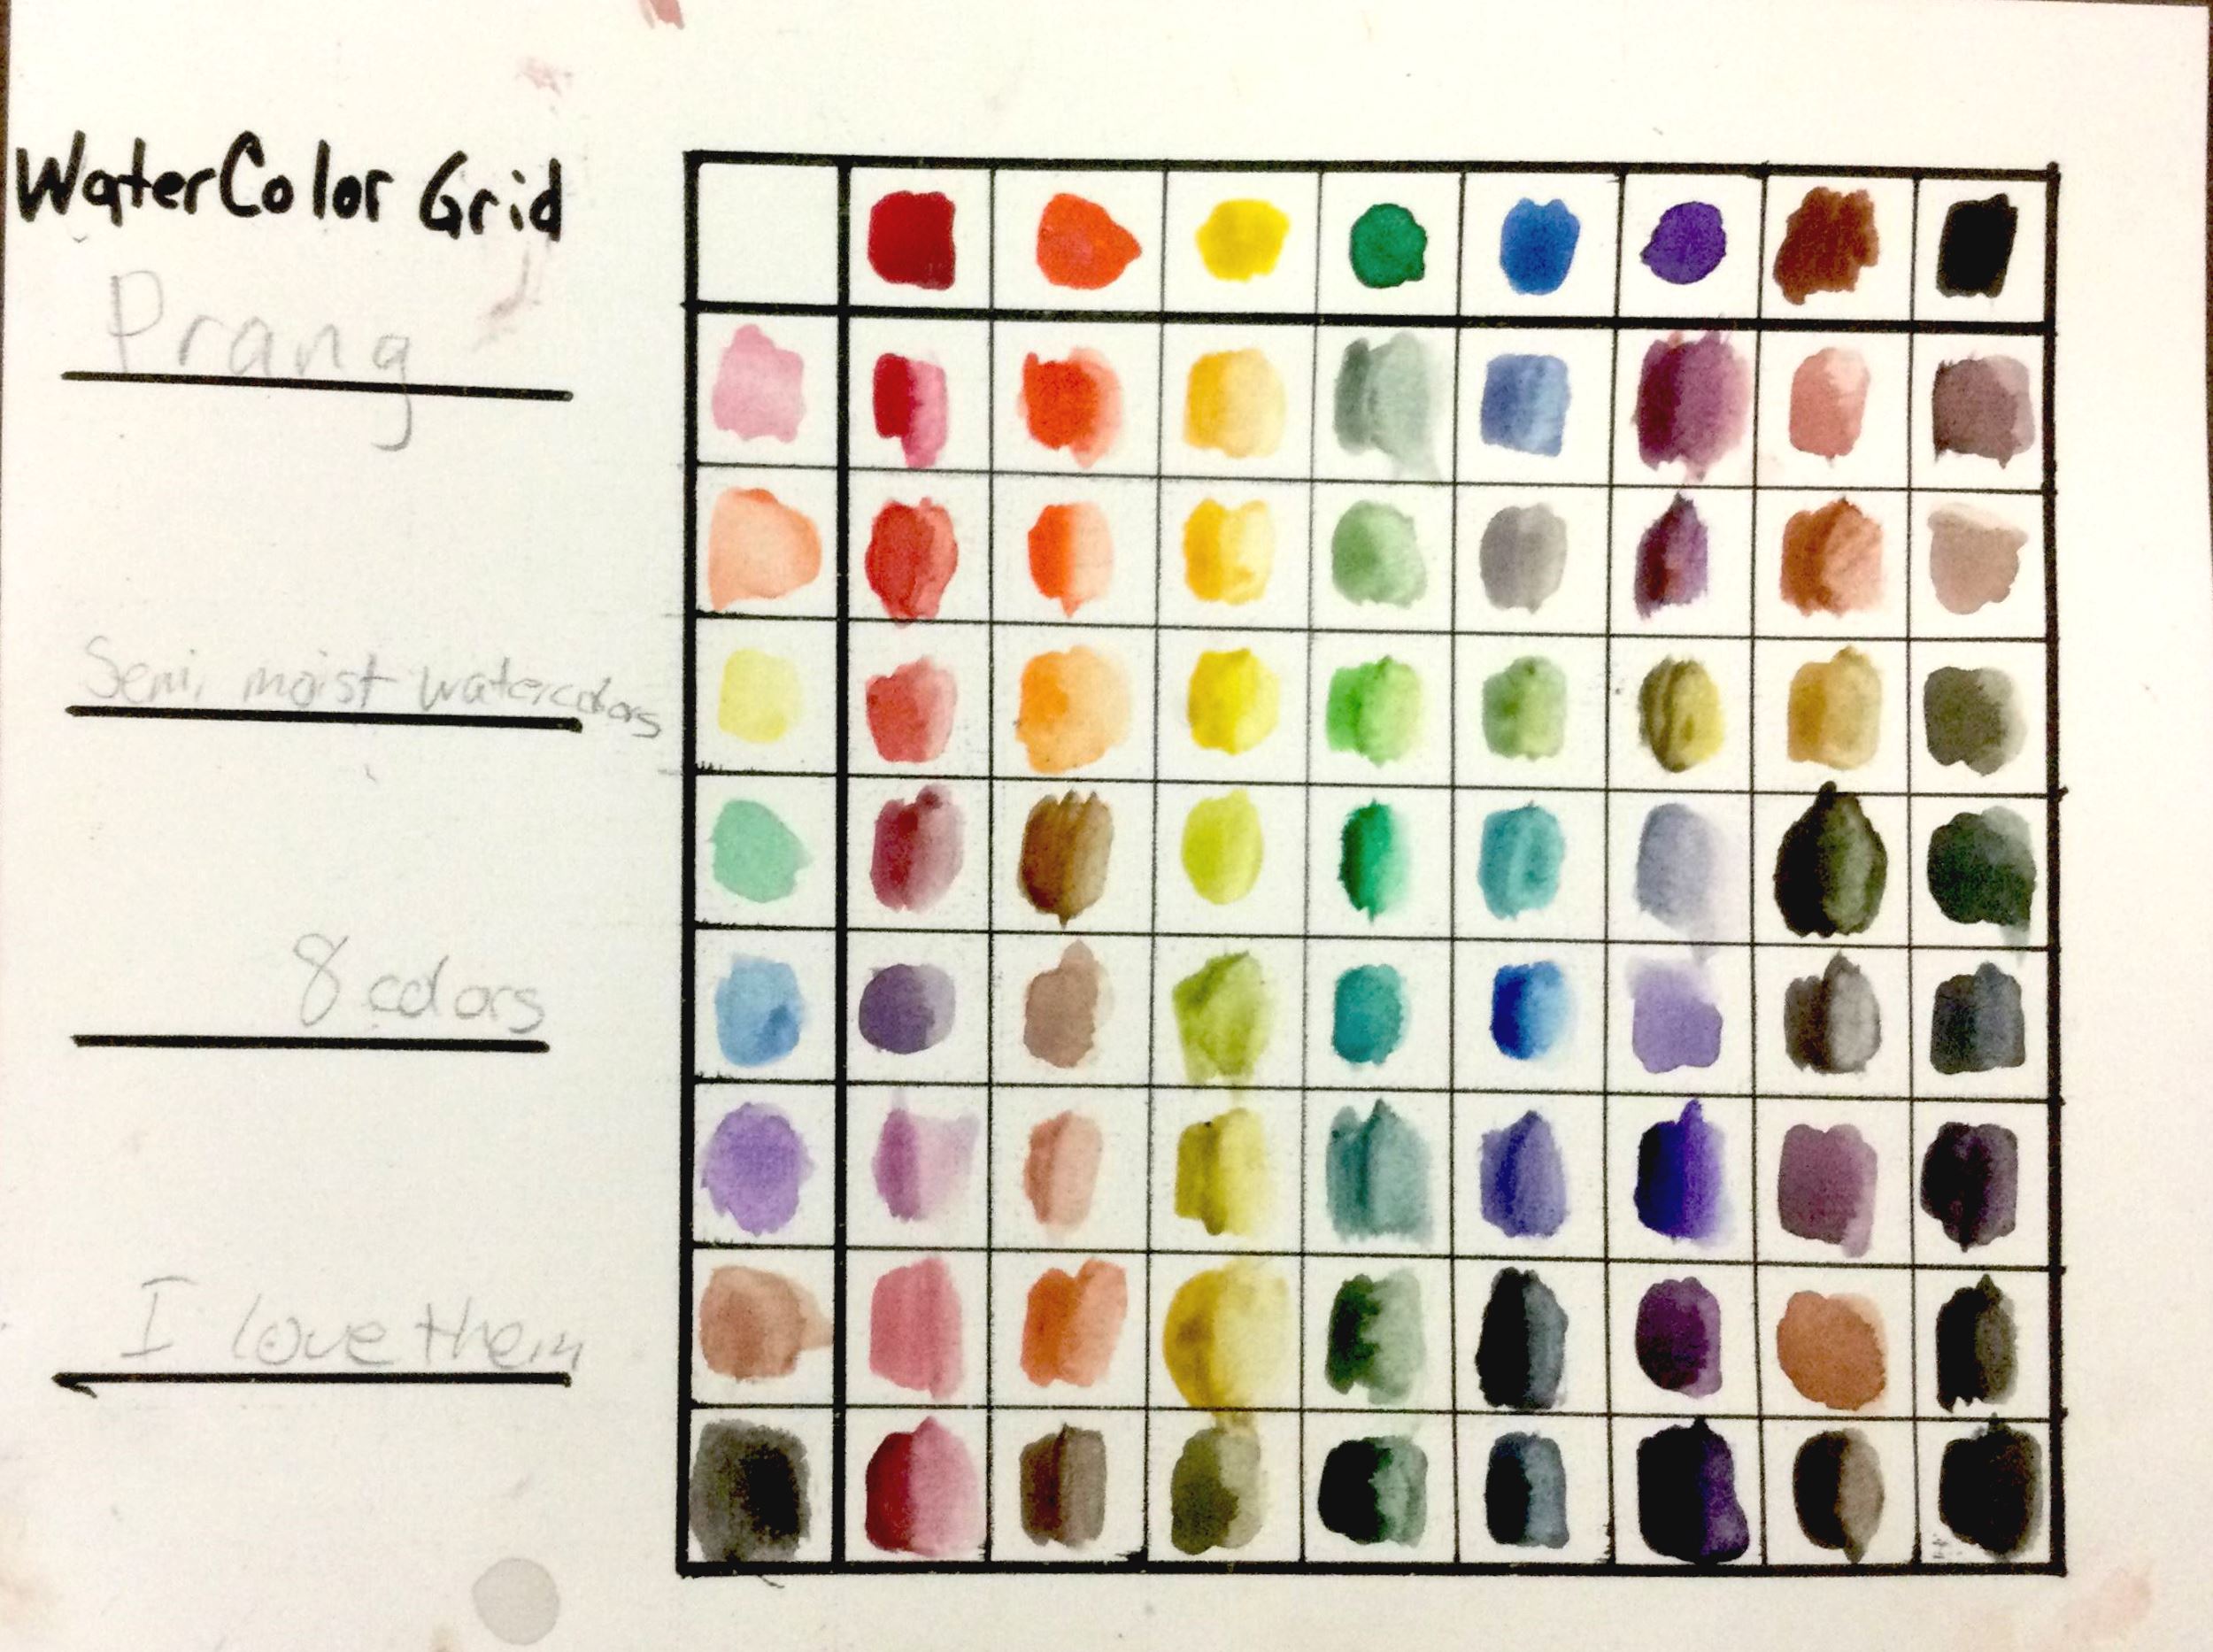 WaterColor Grid
Prang
Semi moist watercolors
8 colors
I love them